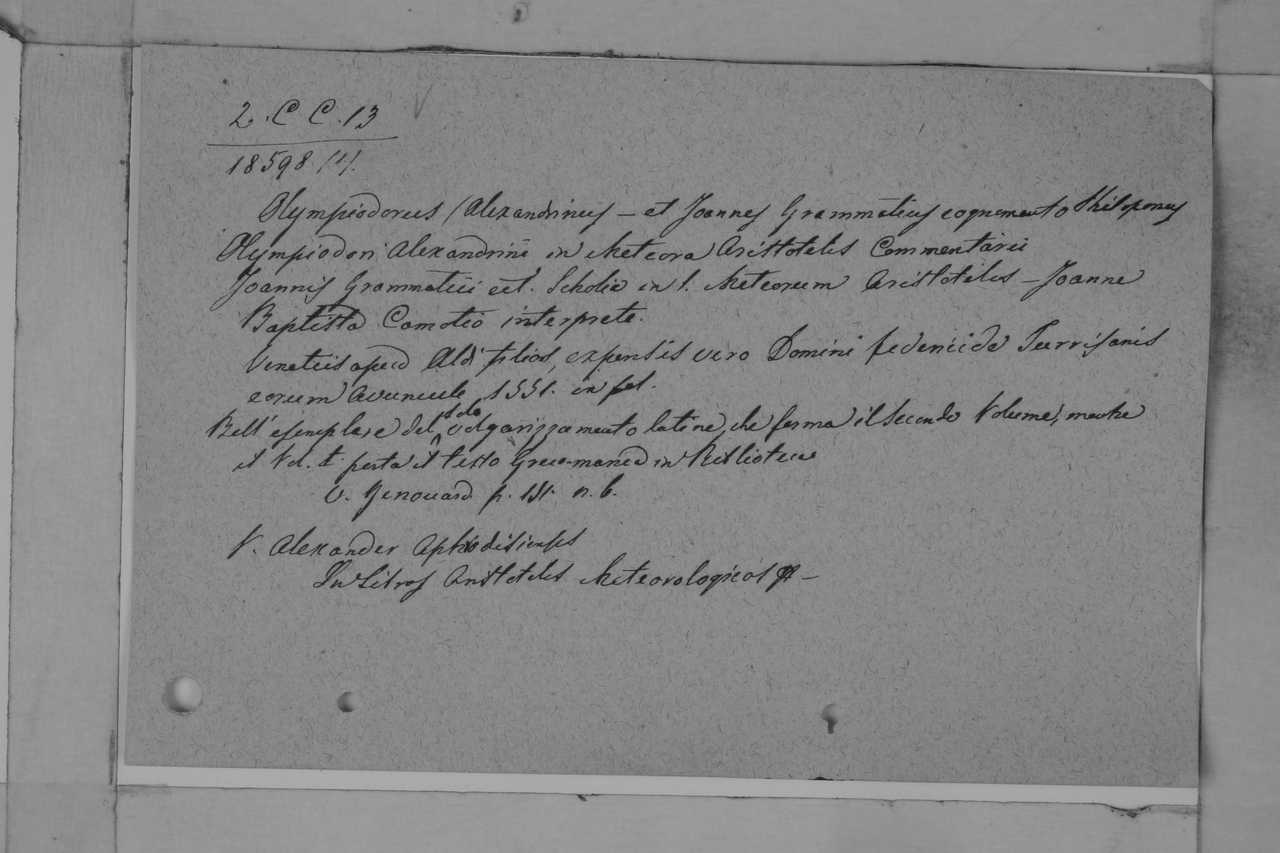 2. C C. 13
18598 (1).
Olympiodorus (Alexandrinus – et Joannes Grammaticus cognomento Philoponus
Olympiodori Alexandrini in Meteora Aristotelis Commentarii
Joannis Grammatici ect. Scholia in 1. Meteorum Aristotelis – Joanne
Baptista Camotio interprete.
Venetiis apud Aldi filios, expensis vero Domini federici de Turrisanis
eorum avunculi 1551. in fol.
Bell' esemplare del volgarizzamento latino, che forma il secondo Volume, mentre
il Vol. I. porta il testo Greco – manca in Biblioteca
V. Renouard p. 151. n. 6.
V. Alexander Aphrodisiensis
In Libros Aristotelis Meteorologicos –